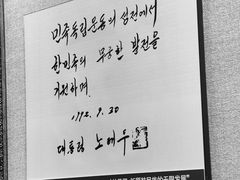 민족독립운동의 성전에서
한민족의 무궁한 발전을
기원하며.
1992. 9. 30
대통령 노태우